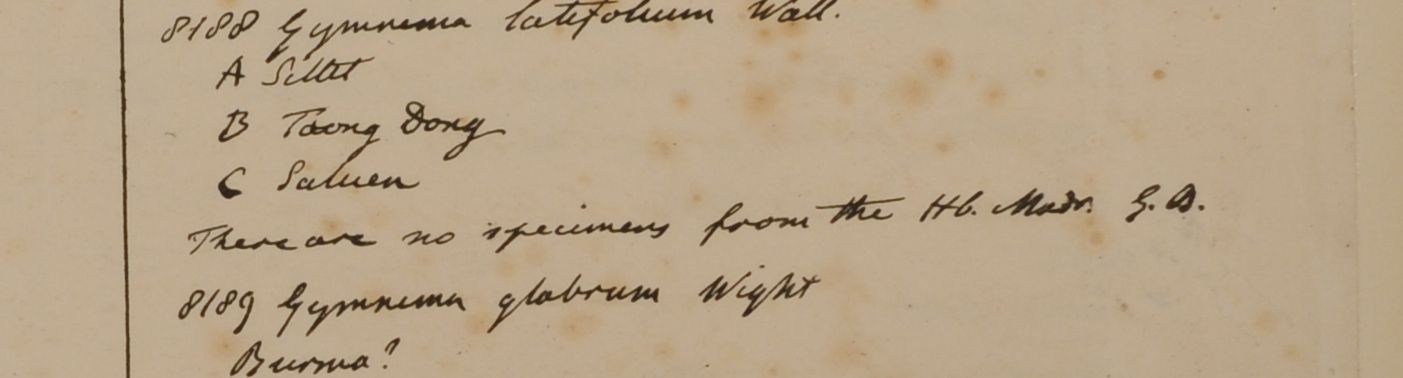 8188 Gymnema latifolium Wall.
A Sillet
B Taong Dong
C Saluen
There are no specimens from the Hb. Madr. G. D.
8189 Gymnema glabrum Wight
Burma?